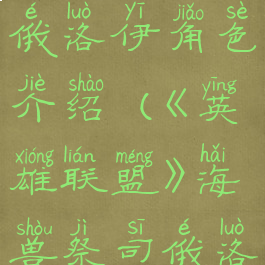 é luò yī jiǎo sè
俄洛伊角色
jiè shào yīng
介绍（《英
xióng lián méng hǎi
雄联盟》海
shòu jì sī é luò
兽祭司俄洛